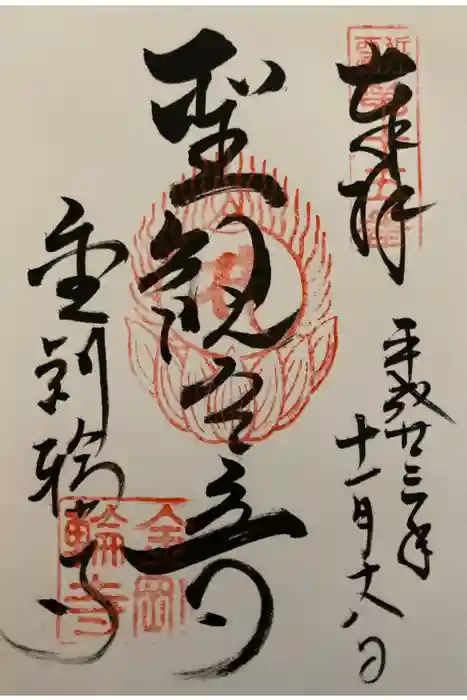 奉拝
平成廿三年
十一月十八日
聖観世音
金剛輪寺